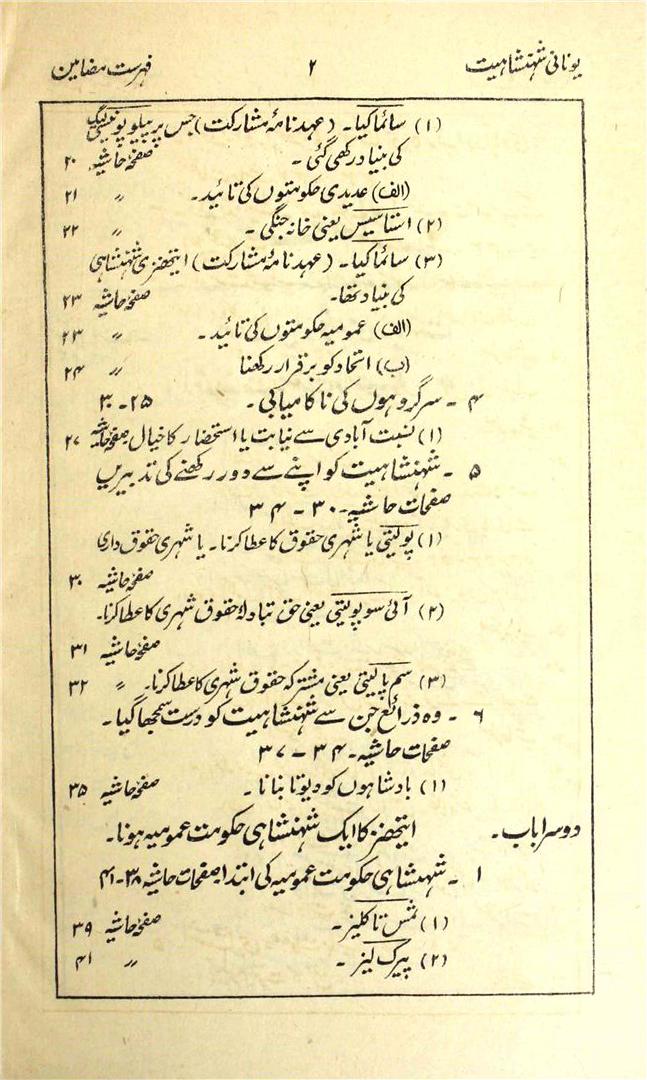 یونانی شہنشاہیت ۲ فہرست مضامین
(۱) سائماکیا۔ (عہدنامۂ مشارکت) جس پر پیلوپونیسی لیگ
کی بنیاد رکھی گئی۔ صفحۂ حاشیہ ۲۰
(الف) عدیدی حکومتوں کی تائید۔ ״ ۲۱
(۲) استاسیس یعنی خانہ جنگی۔ ״ ۲۲
(۳) سائماکیا۔ (عہدنامۂ مشارکت) ایتھنزی شہنشاہی
کی بنیاد تھا۔ صفحۂ حاشیہ ۲۳
(الف) عمومیہ حکومتوں کی تائید۔ ״ ۲۳
(ب) اتحاد کو برقرار رکھنا ״ ۲۴
۴ ۔ سرگروہوں کی ناکامیابی۔ ۲۵۔۳۰
(۱) نسبت آبادی سے نیابت یا استحضار کا خیال۔ صفحۂ حاشیہ ۲۷
۵ ۔ شہنشاہیت کو اپنے سے دور رکھنے کی تدبیریں
صفحات حاشیہ۔ ۳۰ ۔ ۳۴
(۱) پولیٹی یا شہری حقوق کا عطا کرنا۔ یا شہری حقوق داری
صفحۂ حاشیہ ۳۰
(۲) آئی سوپولیٹی یعنی حق تبادلۂ حقوق شہری کا عطا کرنا۔
صفحۂ حاشیہ ۳۱
(۳) سم پالیٹی یعنی مشترکہ حقوق شہری کا عطا کرنا۔ ״ ۳۲
۶ ۔ وہ ذرائع جن سے شہنشاہیت کو درست سمجھا گیا۔
صفحات حاشیہ۔ ۳۴ ۔ ۳۷
(۱) بادشاہوں کو دیوتا بنانا۔ صفحۂ حاشیہ ۳۵
دوسرا باب۔ ایتھنز کا ایک شہنشاہی حکومت عمومیہ ہونا۔
۱ ۔ شہنشاہی حکومت عمومیہ کی ابتدا۔ صفحات حاشیہ ۳۸۔۴۱
(۱) تمس تاکلیز۔ صفحۂ حاشیہ ۳۹
(۲) پیرک لیز۔ ״ ۴۱